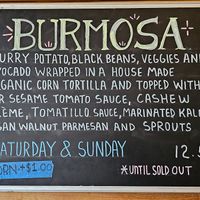 BURMOSA
URRY POTATO, BLACK BEANS, VEGGIES AN
VOCADO WRAPPED IN A HOUSE MADE
RGANIC CORN TORTILLA AND TOPPED WITH
R SESAME TOMATO SAUCE, CASHEW
EME, TOMATILLO SAUCE, MARINATED KAL
GAN WALNUT PARMESAN AND SPROUTS
SATURDAY & SUNDAY 12.5
ORN +$1.00
*UNTIL SOLD OUT